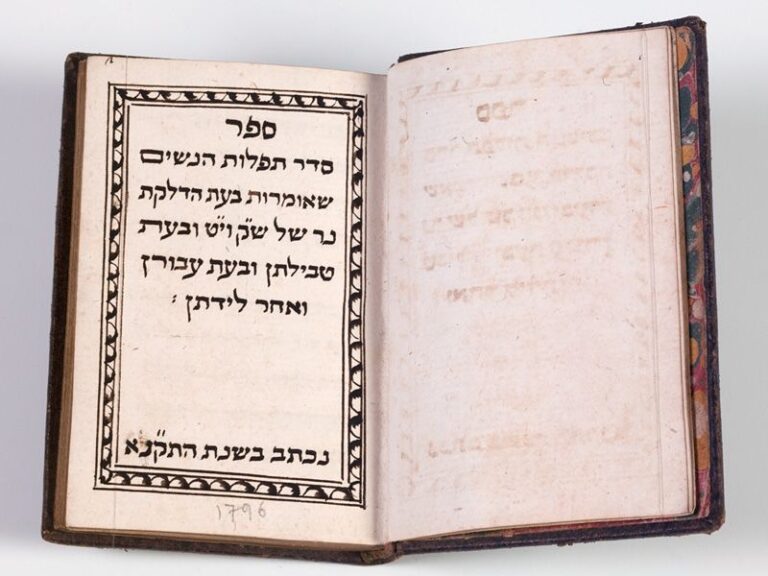 ספר
סדר תפלות הנשים
שאומרות בעת הדלקת
נר של ש״ק וי״ט ובעת
טבילתן ובעת עבורן
ואחר לידתן :
נכתב בשנת התק״נא
1796